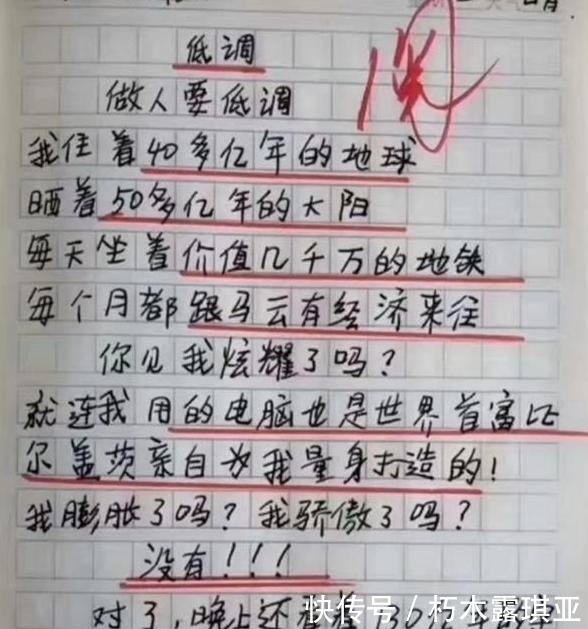 低调
做人要低调
我住着40多亿年的地球
晒着50多亿年的大阳
每天坐着价值几千万的地铁
每个月都跟马云有经济来往
你见我炫耀了吗？
就连我用的电脑也是世界首富比
尔盖茨亲自为我量身打造的！
我膨胀了吗？我骄傲了吗？
没有！！！
对了，晚上还
快传号/朽木露琪亚